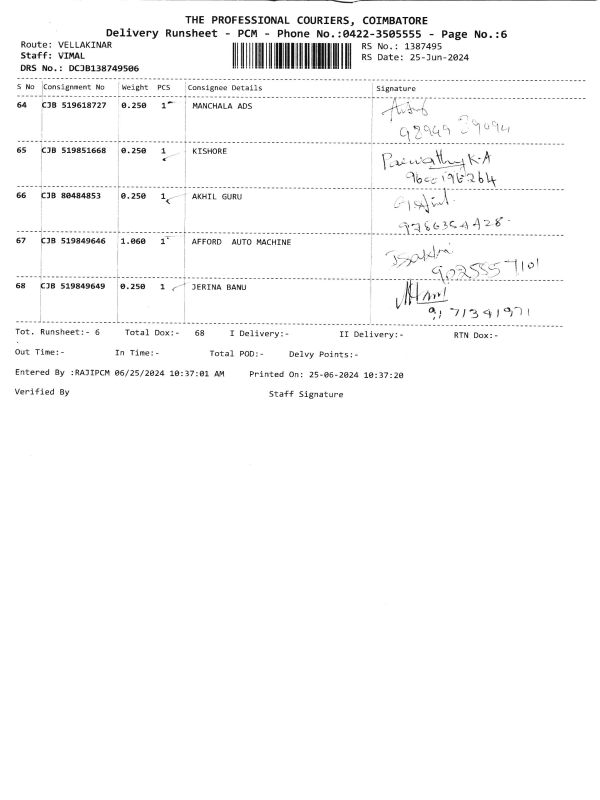 THE PROFESSIONAL COURIERS, COIMBATORE
Delivery Runsheet - PCM - Phone No.:0422-3505555 - Page No.:6
Route: VELLAKINAR RS No.: 1387495
Staff: VIMAL RS Date: 25-Jun-2024
DRS No.: DCJB138749506
S No Consignment No Weight PCS Consignee Details Signature
64 CJB 519618727 0.250 1 MANCHALA ADS
65 CJB 519851668 0.250 1 KISHORE
66 CJB 80484853 0.250 1 AKHIL GURU
67 CJB 519849646 1.060 1 AFFORD AUTO MACHINE
9025557101
68 CJB 519849649 0.250 1 JERINA BANU
Tot. Runsheet:- 6 Total Dox:- 68 I Delivery:- II Delivery:- RTN Dox:-
Out Time:- In Time:- Total POD:- Delvy Points:-
Entered By :RAJIPCM 06/25/2024 10:37:01 AM Printed On: 25-06-2024 10:37:20
Verified By Staff Signature